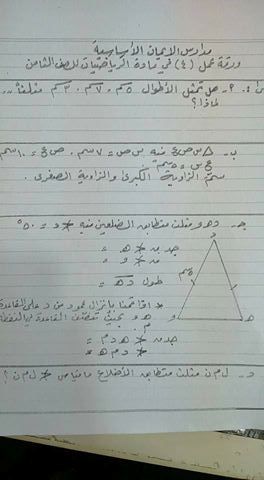 مدارس الايمان الأساسية
ورقة عمل (٤) في مادة الرياضيات للصف الثامن
هل تمثل الأطوال ٥سم ، ٧سم ، ٣سم مثلثاً
لماذا؟
ب- △ س ص ع فيه س ص = ٧سم ، ص ع = ١٠سم
ع س = ٥سم
سمّ الزاوية الكبرى والزاوية الصغرى .
ج- د هـ و مثلث متطابق الضلعين فيه ∢ د = ٥٠°
جد ∢ هـ =
∢ و =
طول د هـ =
* اذا قمنا بإنزال عمود من د على القاعدة
هـ و بحيث القاعدة في النقطة
م .
جد ∢ هـ د م =
∢ د م هـ =
٥سم
د
و
هـ
د- ل م ن مثلث متطابق الأضلاع ما قياس ∢ ل م ن ؟